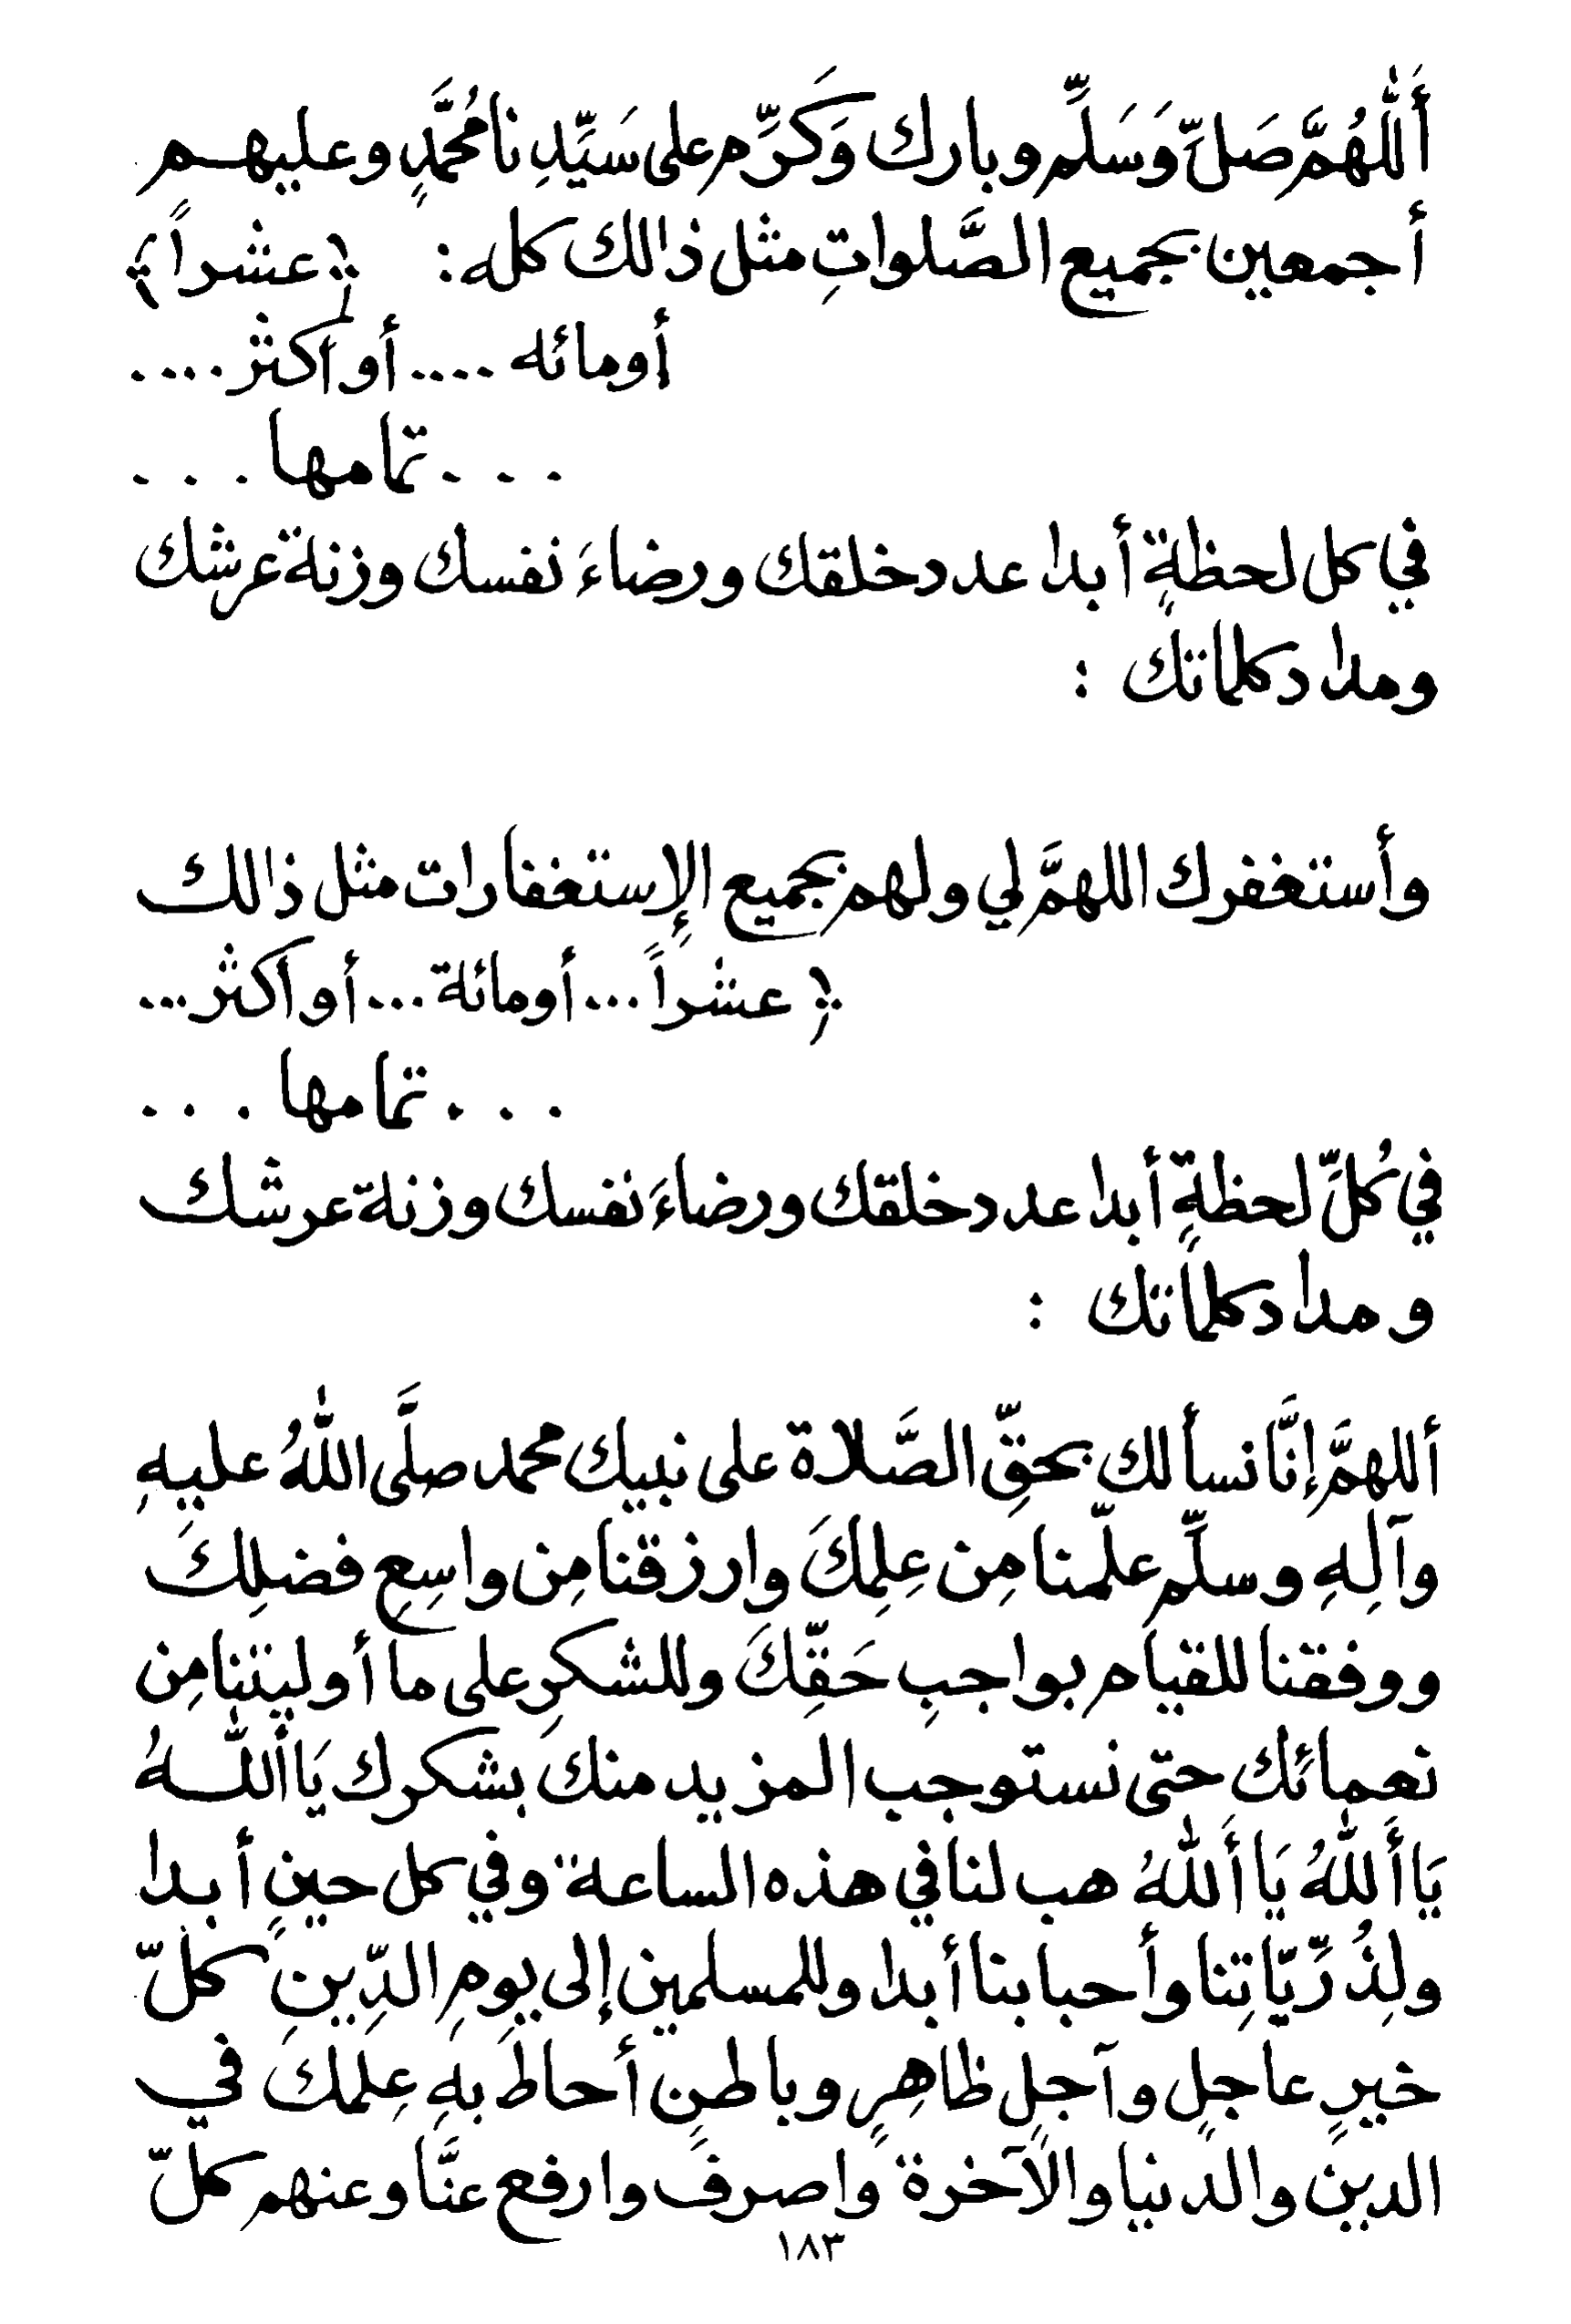 أَللّٰهُمَّ صَلِّ وَسَلِّم وبارك وَكَرِّم على سَيِّدِنا مُحَمَّدٍ وعليهم
أجمعين بجميع الصَّلواتِ مثل ذالك كله : ﴿ عشراً ﴾
أومائه .... أو أكثر ....
... تمامها ...
في كل لحظةٍ أبدا عدد خلقك ورضاءَ نفسك وزنة عرشك
ومداد كلماتك :
وأستغفرك اللهمَّ لي ولهم بجميع الإستغفارات مثل ذالك
﴿ عشراً ... أومائة ... أو أكثر ...
... تمامها ...
في كُلِّ لحظةٍ أبدا عدد خلقك ورضاءَ نفسك وزنة عرشك
ومداد كلماتك :
أللهمَّ إنَّا نسألك بحقِّ الصَّلاة على نبيك محمد صلَّى اللّٰهُ عليهِ
وآلِهِ وسلِّم علّمنا مِن عِلِمكَ وارزقنا مِن واسِعِ فضلِكَ
ووفقنا للقيام بواجبِ حَقِّكَ وللشكرِ على ما أوليتنا مِن
نعمائك حتى نستوجب المزيد منك بشكرك يَا أَللّٰهُ
يَا أَللّٰهُ يَا أَللّٰهُ هب لنا في هذه الساعة وفي كل حينٍ أبدا
ولِذُرِّيّاتِنا وأحبابنا أبدا وللمسلمين إلى يومِ الدِّينِ كلّ
خيرٍ عاجلٍ وآجلٍ ظاهِرٍ وباطنٍ أحاطَ بهِ عِلمكَ في
الدين والدنيا والآخرة واصرف وارفع عنَّا وعنهم كلّ
١٨٣